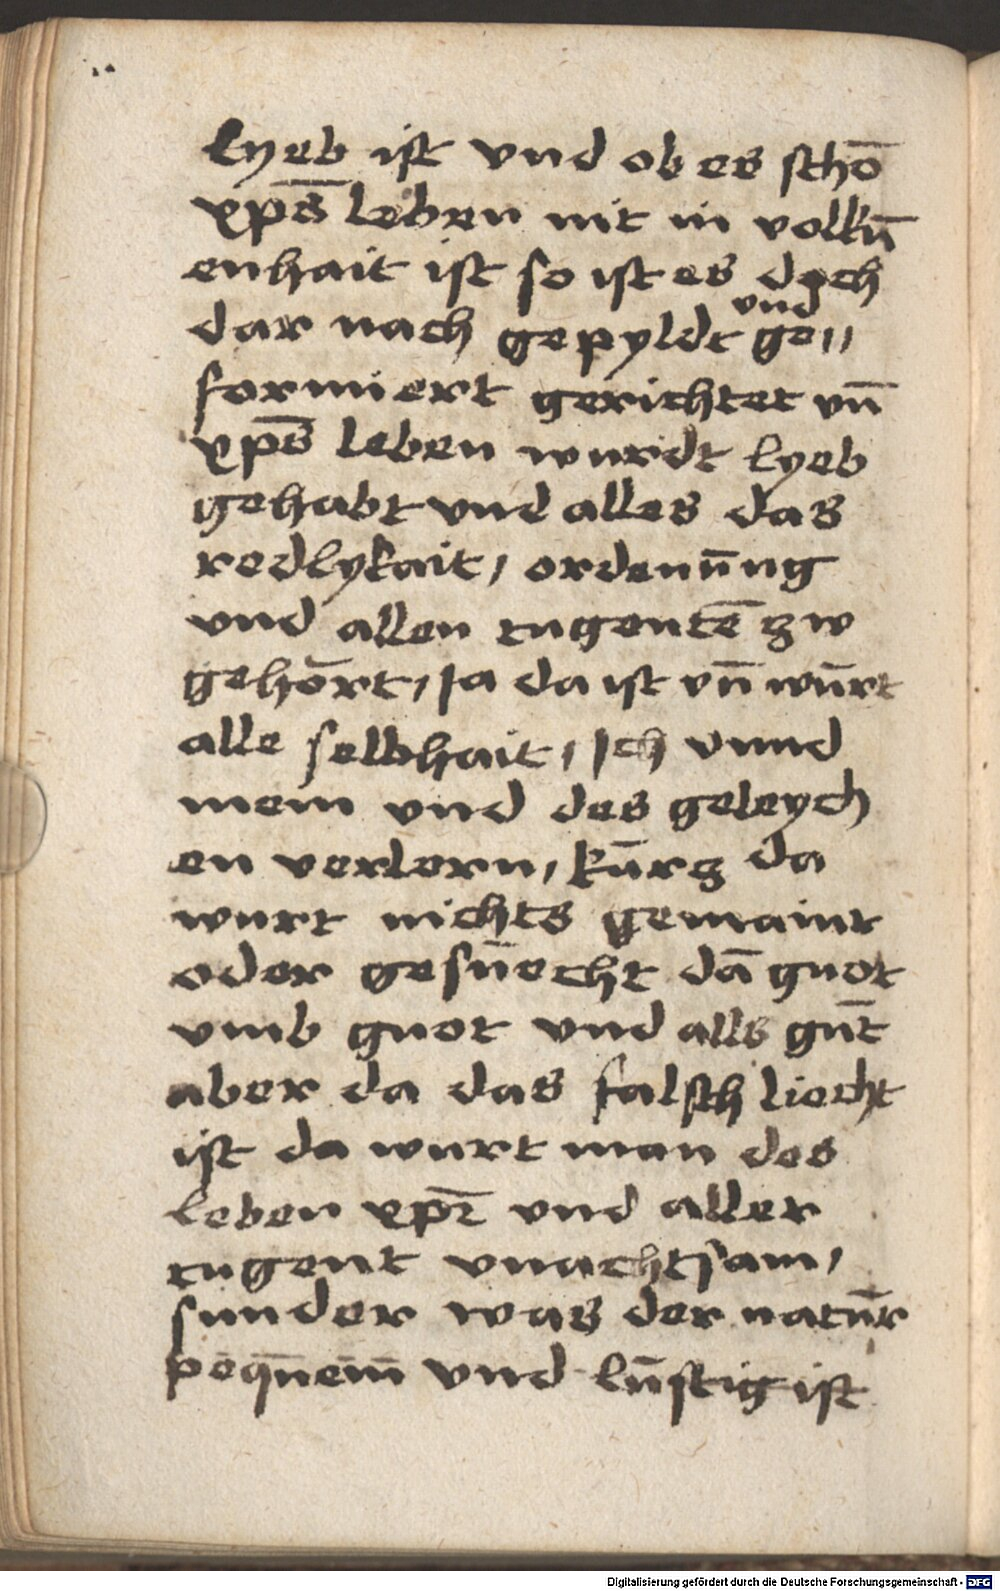 lyeb ist vnd ob es schō
xp̄s leben nit in volkū
enhait ist so ist es doch
dar nach gepyldt vnd ge„
formiert gerichtet vn̄
xp̄s leben wurdt lyeb
gehabt vnd alles das
redlykait, ordenūng
vnd allen tugentē zw
gehōrt, Ja da ist vn̄ wūrt
alle selbhait, Ich vnnd
mein vnd des geleych
en verlorn, kūrz da
wurt nichts gemaint
oder gesūecht dā guot
vmb guot vnd alls gūt
aber da das falsch liecht
ist da wurt man des
leben xp̄i vnd aller
tugent vnachtsam,
sunder was der natūr
peqūem̄ vnd lūstig ist
Digitalisierung gefördert durch die Deutsche Forschungsgemeinschaft - DFG